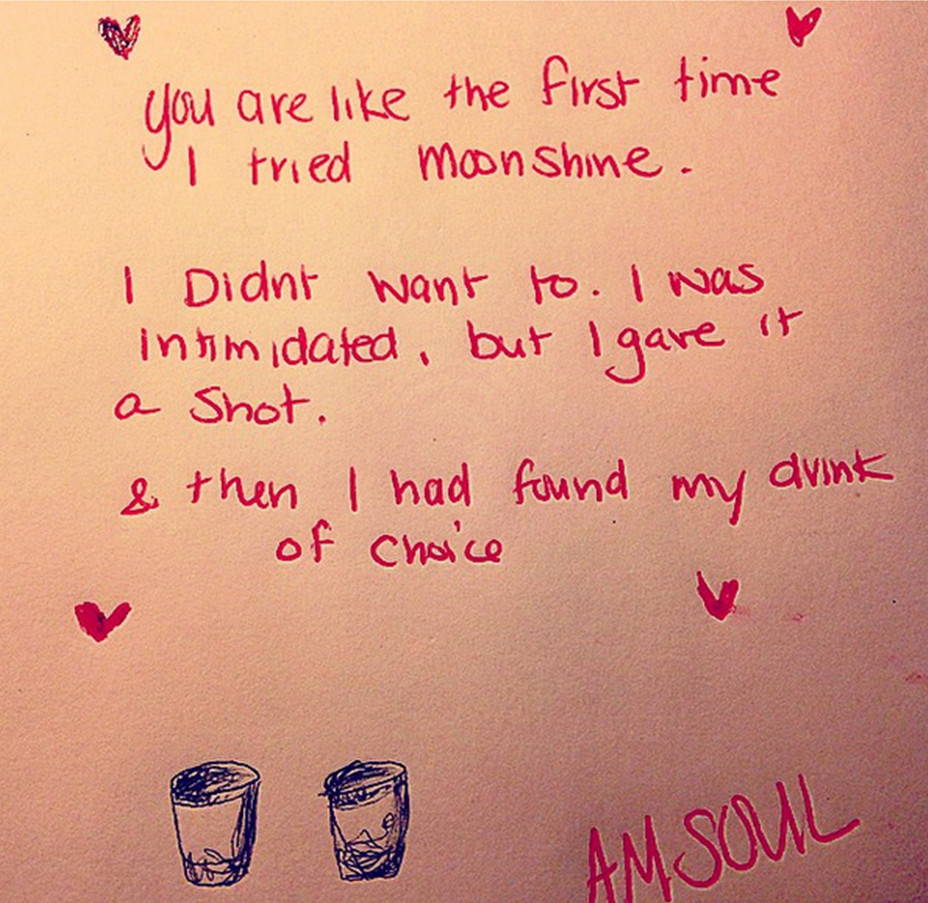 you are like the first time
I tried moonshine.
I Didnt want to. I was
intimidated, but I gave it
a shot.
& then I had found my drink
of choice
AMSOUL